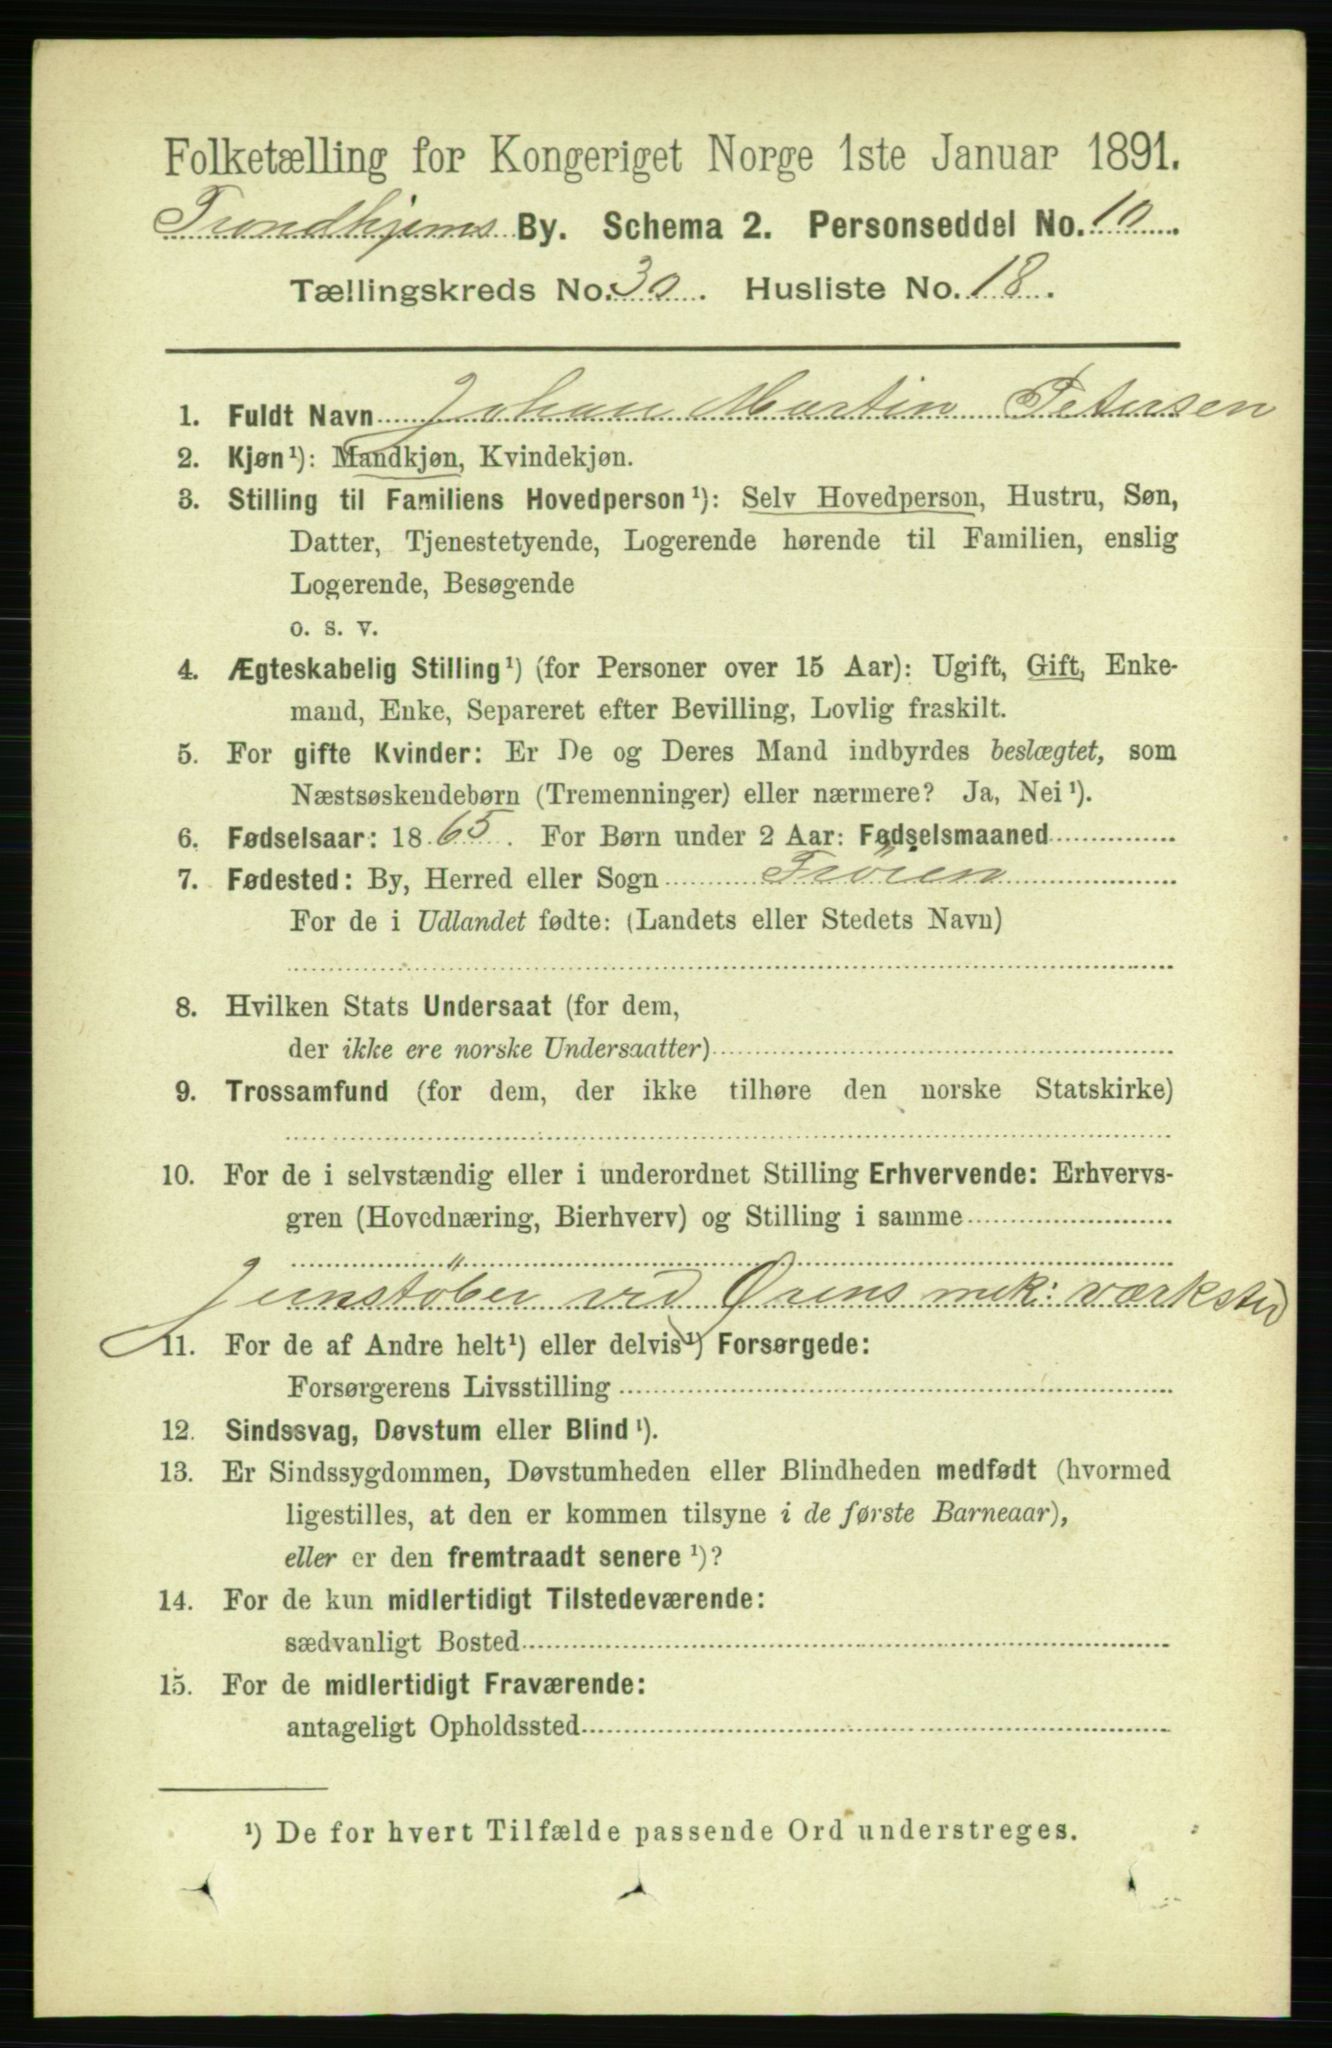 Folketælling for Kongeriget Norge 1ste Januar 1891.
Trondhjems By. Schema 2. Personseddel No. 10
Tællingskreds No. 30. Husliste No. 18.
1. Fuldt Navn Johan Martin Petersen
2. Kjøn¹): Mandkjøn, Kvindekjøn.
3. Stilling til Familiens Hovedperson¹): Selv Hovedperson, Hustru, Søn,
Datter, Tjenestetyende, Logerende hørende til Familien, enslig
Logerende, Besøgende
o. s. v.
4. Ægteskabelig Stilling¹) (for Personer over 15 Aar): Ugift, Gift, Enke-
mand, Enke, Separeret efter Bevilling, Lovlig fraskilt.
5. For gifte Kvinder: Er De og Deres Mand indbyrdes beslægtet, som
Næstsøskendebørn (Tremenninger) eller nærmere? Ja, Nei¹).
6. Fødselsaar: 1865. For Børn under 2 Aar: Fødselsmaaned
7. Fødested: By, Herred eller Sogn Fröien
For de i Udlandet fødte: (Landets eller Stedets Navn)
8. Hvilken Stats Undersaat (for dem,
der ikke ere norske Undersaatter)
9. Trossamfund (for dem, der ikke tilhøre den norske Statskirke)
10. For de i selvstændig eller i underordnet Stilling Erhvervende: Erhvervs-
gren (Hovednæring, Bierhverv) og Stilling i samme
Jernstöber ved Ørens mek: værksted
11. For de af Andre helt¹) eller delvis¹) Forsørgede:
Forsørgerens Livsstilling
12. Sindssvag, Døvstum eller Blind¹).
13. Er Sindssygdommen, Døvstumheden eller Blindheden medfødt (hvormed
ligestilles, at den er kommen tilsyne i de første Barneaar),
eller er den fremtraadt senere¹)?
14. For de kun midlertidigt Tilstedeværende:
sædvanligt Bosted
15. For de midlertidigt Fraværende:
antageligt Opholdssted
¹) De for hvert Tilfælde passende Ord understreges.